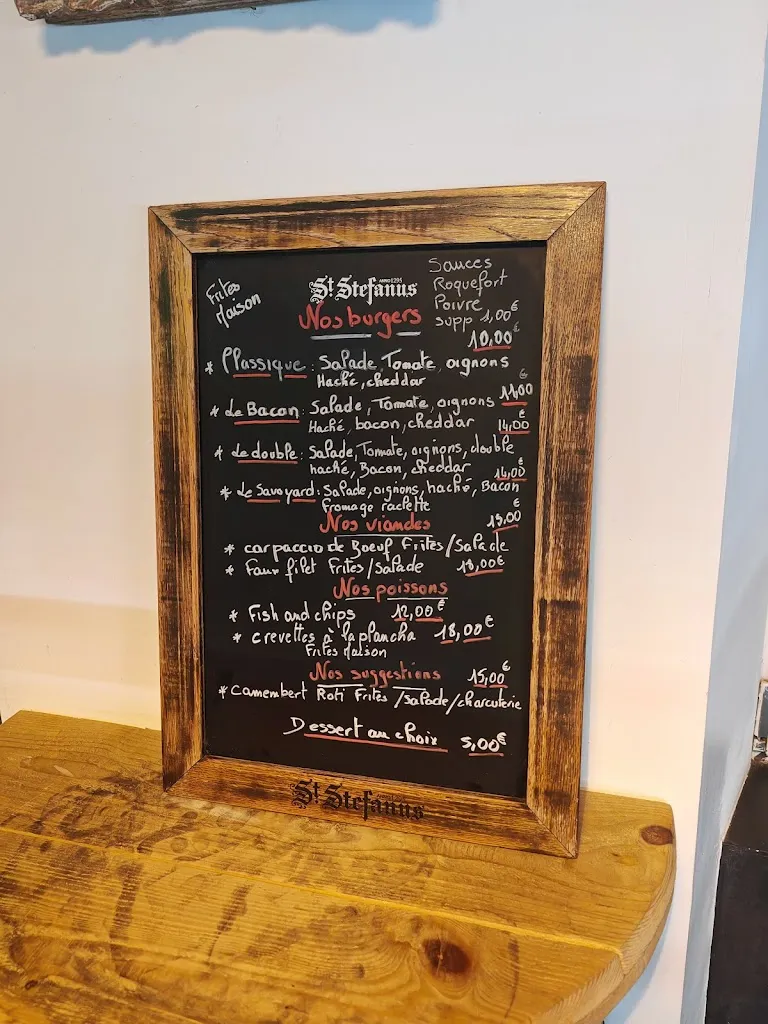 Frites
Maison
ANNO 1295
St Stefanus
Nos burgers
Sauces
Roquefort
Poivre
supp 1,00€
10,00€
* Classique : Salade, Tomate, oignons
Haché, cheddar
11,00€
* Le Bacon : Salade, Tomate, oignons
Haché, bacon, cheddar
14,00€
* Le double : Salade, Tomate, oignons, double
haché, Bacon, cheddar
14,00€
* Le Savoyard : Salade, oignons, haché, Bacon
fromage raclette
Nos viandes
15,00€
* carpaccio de Boeuf Frites/Salade
* Faux filet Frites/Salade 18,00€
Nos poissons
* Fish and chips 12,00€
* crevettes à la plancha 18,00€
Frites Maison
Nos suggestions 15,00€
* Camembert Roti Frites /salade/charcuterie
Dessert au choix 5,00€
St Stefanus